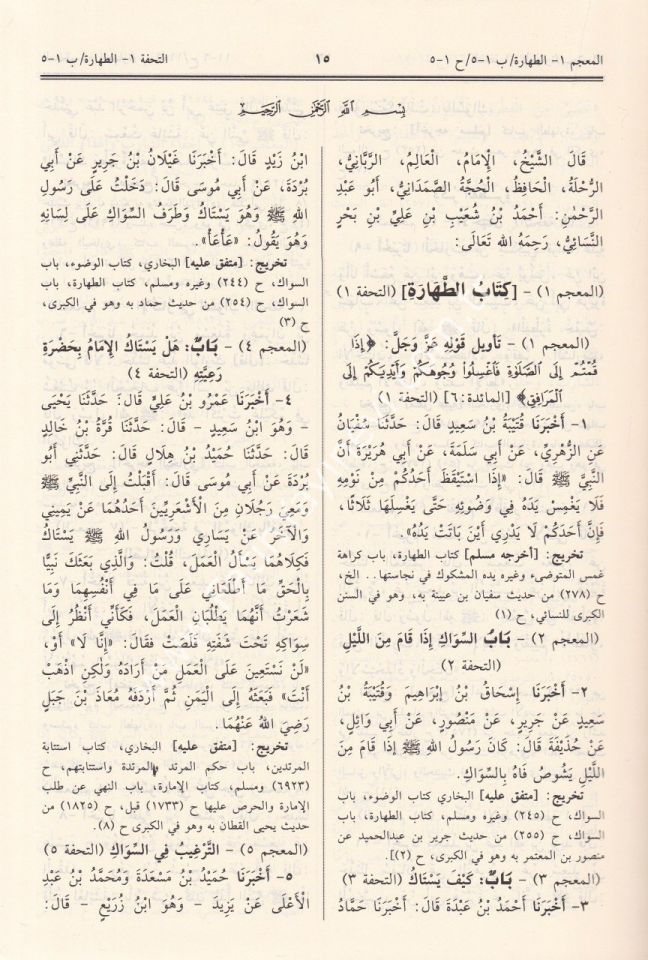 المعجم ١- الطهارة/ ب ١-٥/ ح ١-٥
١٥
التحفة ١- الطهارة/ ب ١-٥
بِسْمِ اللَّهِ الرَّحْمَٰنِ الرَّحِيمِ
قَالَ الشَّيْخُ، الْإِمَامُ، الْعَالِمُ، الرَّبَّانِيُّ،
الرُّحْلَةُ، الْحَافِظُ، الْحُجَّةُ الصَّمَدَانِيُّ، أَبُو عَبْدِ
الرَّحْمٰنِ: أَحْمَدُ بْنُ شُعَيْبِ بْنِ عَلِيِّ بْنِ بَحْرٍ
النَّسَائِيُّ، رَحِمَهُ الله تَعَالَى:
(المعجم ١) - [كِتَابُ الطَّهَارَةِ] (التحفة ١)
(المعجم ١) - تَأْوِيل قَوْلِهِ عَزَّ وَجَلَّ: ﴿إِذَا
قُمْتُمْ إِلَى الصَّلَوٰةِ فَاغْسِلُوا وُجُوهَكُمْ وَأَيْدِيَكُمْ إِلَى
الْمَرَافِقِ﴾ [المائدة:٦] (التحفة ١)
١- أَخْبَرَنَا قُتَيْبَةُ بْنُ سَعِيدٍ قَالَ: حَدَّثَنَا سُفْيَانُ
عَنِ الزُّهْرِيِّ، عَنْ أَبِي سَلَمَةَ، عَنْ أَبِي هُرَيْرَةَ أَنَّ
النَّبِيَّ ﷺ قَالَ: «إِذَا اسْتَيْقَظَ أَحَدُكُمْ مِنْ نَوْمِهِ
فَلَا يَغْمِسْ يَدَهُ فِي وَضُوئِهِ حَتَّى يَغْسِلَهَا ثَلَاثًا،
فَإِنَّ أَحَدَكُمْ لَا يَدْرِي أَيْنَ بَاتَتْ يَدُهُ».
تخريج: [أخرجه مسلم] كتاب الطهارة، باب كراهة
غمس المتوضىء وغيره يده المشكوك في نجاستها.. الخ،
ح (٢٧٨) من حديث سفيان بن عيينة به، وهو في السنن
الكبرى للنسائي، ح (١)
(المعجم ٢) - بَابُ السِّوَاكِ إِذَا قَامَ مِنَ اللَّيْلِ
(التحفة ٢)
٢- أَخْبَرَنَا إِسْحَاقُ بْنُ إِبْرَاهِيمَ وَقُتَيْبَةُ بْنُ
سَعِيدٍ عَنْ جَرِيرٍ، عَنْ مَنْصُورٍ، عَنْ أَبِي وَائِلٍ،
عَنْ حُذَيْفَةَ قَالَ: كَانَ رَسُولُ اللهِ ﷺ إِذَا قَامَ مِنَ
اللَّيْلِ يَشُوصُ فَاهُ بِالسِّوَاكِ.
تخريج: [متفق عليه] البخاري كتاب الوضوء، باب
السواك، ح (٢٤٥) وغيره ومسلم، كتاب الطهارة، باب
السواك، ح (٢٥٥) من حديث جرير بن عبدالحميد عن
منصور بن المعتمر به وهو في الكبرى، ح (٢)].
(المعجم ٣) - بَابٌ: كَيْفَ يَسْتَاكُ (التحفة ٣)
٣- أَخْبَرَنَا أَحْمَدُ بْنُ عَبْدَةَ قَالَ: أَخْبَرَنَا حَمَّادُ
ابْنُ زَيْدٍ قَالَ: أَخْبَرَنَا غَيْلَانُ بْنُ جَرِيرٍ عَنْ أَبِي
بُرْدَةَ، عَنْ أَبِي مُوسَى قَالَ: دَخَلْتُ عَلَى رَسُولِ
اللهِ ﷺ وَهُوَ يَسْتَاكُ وَطَرَفُ السِّوَاكِ عَلَى لِسَانِهِ
وَهُوَ يَقُولُ: «عَأْعَأْ».
تخريج: [متفق عليه] البخاري، كتاب الوضوء، باب
السواك، ح (٢٤٤) وغيره ومسلم، كتاب الطهارة، باب
السواك، ح (٢٥٤) من حديث حماد به وهو في الكبرى،
ح (٣)
(المعجم ٤) - بَابٌ: هَلْ يَسْتَاكُ الْإِمَامُ بِحَضْرَةِ
رَعِيَّتِهِ (التحفة ٤)
٤- أَخْبَرَنَا عَمْرُو بْنُ عَلِيٍّ قَالَ: حَدَّثَنَا يَحْيَى
- وَهُوَ ابْنُ سَعِيدٍ - قَالَ: حَدَّثَنَا قُرَّةُ بْنُ خَالِدٍ
قَالَ: حَدَّثَنَا حُمَيْدُ بْنُ هِلَالٍ قَالَ: حَدَّثَنِي أَبُو
بُرْدَةَ عَنْ أَبِي مُوسَى قَالَ: أَقْبَلْتُ إِلَى النَّبِيِّ ﷺ
وَمَعِيَ رَجُلَانِ مِنَ الْأَشْعَرِيِّينَ أَحَدُهُمَا عَنْ يَمِينِي
وَالْآخَرُ عَنْ يَسَارِي وَرَسُولُ اللهِ ﷺ يَسْتَاكُ
فَكِلَاهُمَا يَسْأَلُ الْعَمَلَ، قُلْتُ: وَالَّذِي بَعَثَكَ نَبِيًّا
بِالْحَقِّ مَا أَطْلَعَانِي عَلَى مَا فِي أَنْفُسِهِمَا وَمَا
شَعَرْتُ أَنَّهُمَا يَطْلُبَانِ الْعَمَلَ، فَكَأَنِّي أَنْظُرُ إِلَى
سِوَاكِهِ تَحْتَ شَفَتِهِ قَلَصَتْ فَقَالَ: «إِنَّا لَا» أَوْ،
«لَنْ نَسْتَعِينَ عَلَى الْعَمَلِ مَنْ أَرَادَهُ وَلٰكِنِ اذْهَبْ
أَنْتَ» فَبَعَثَهُ إِلَى الْيَمَنِ ثُمَّ أَرْدَفَهُ مُعَاذُ بْنُ جَبَلٍ
رَضِيَ اللهُ عَنْهُمَا.
تخريج: [متفق عليه] البخاري، كتاب استتابة
المرتدين، باب حكم المرتد والمرتدة واستتابتهم، ح
(٦٩٢٣) ومسلم، كتاب الإمارة، باب النهي عن طلب
الإمارة والحرص عليها ح (١٧٣٣) قبل، ح (١٨٢٥) من
حديث يحيى القطان به وهو في الكبرى ح (٨).
(المعجم ٥) - التَّرْغِيبُ فِي السِّوَاكِ (التحفة ٥)
٥- أَخْبَرَنَا حُمَيْدُ بْنُ مَسْعَدَةَ وَمُحَمَّدُ بْنُ عَبْدِ
الْأَعْلَى عَنْ يَزِيدَ - وَهُوَ ابْنُ زُرَيْعٍ - قَالَ: